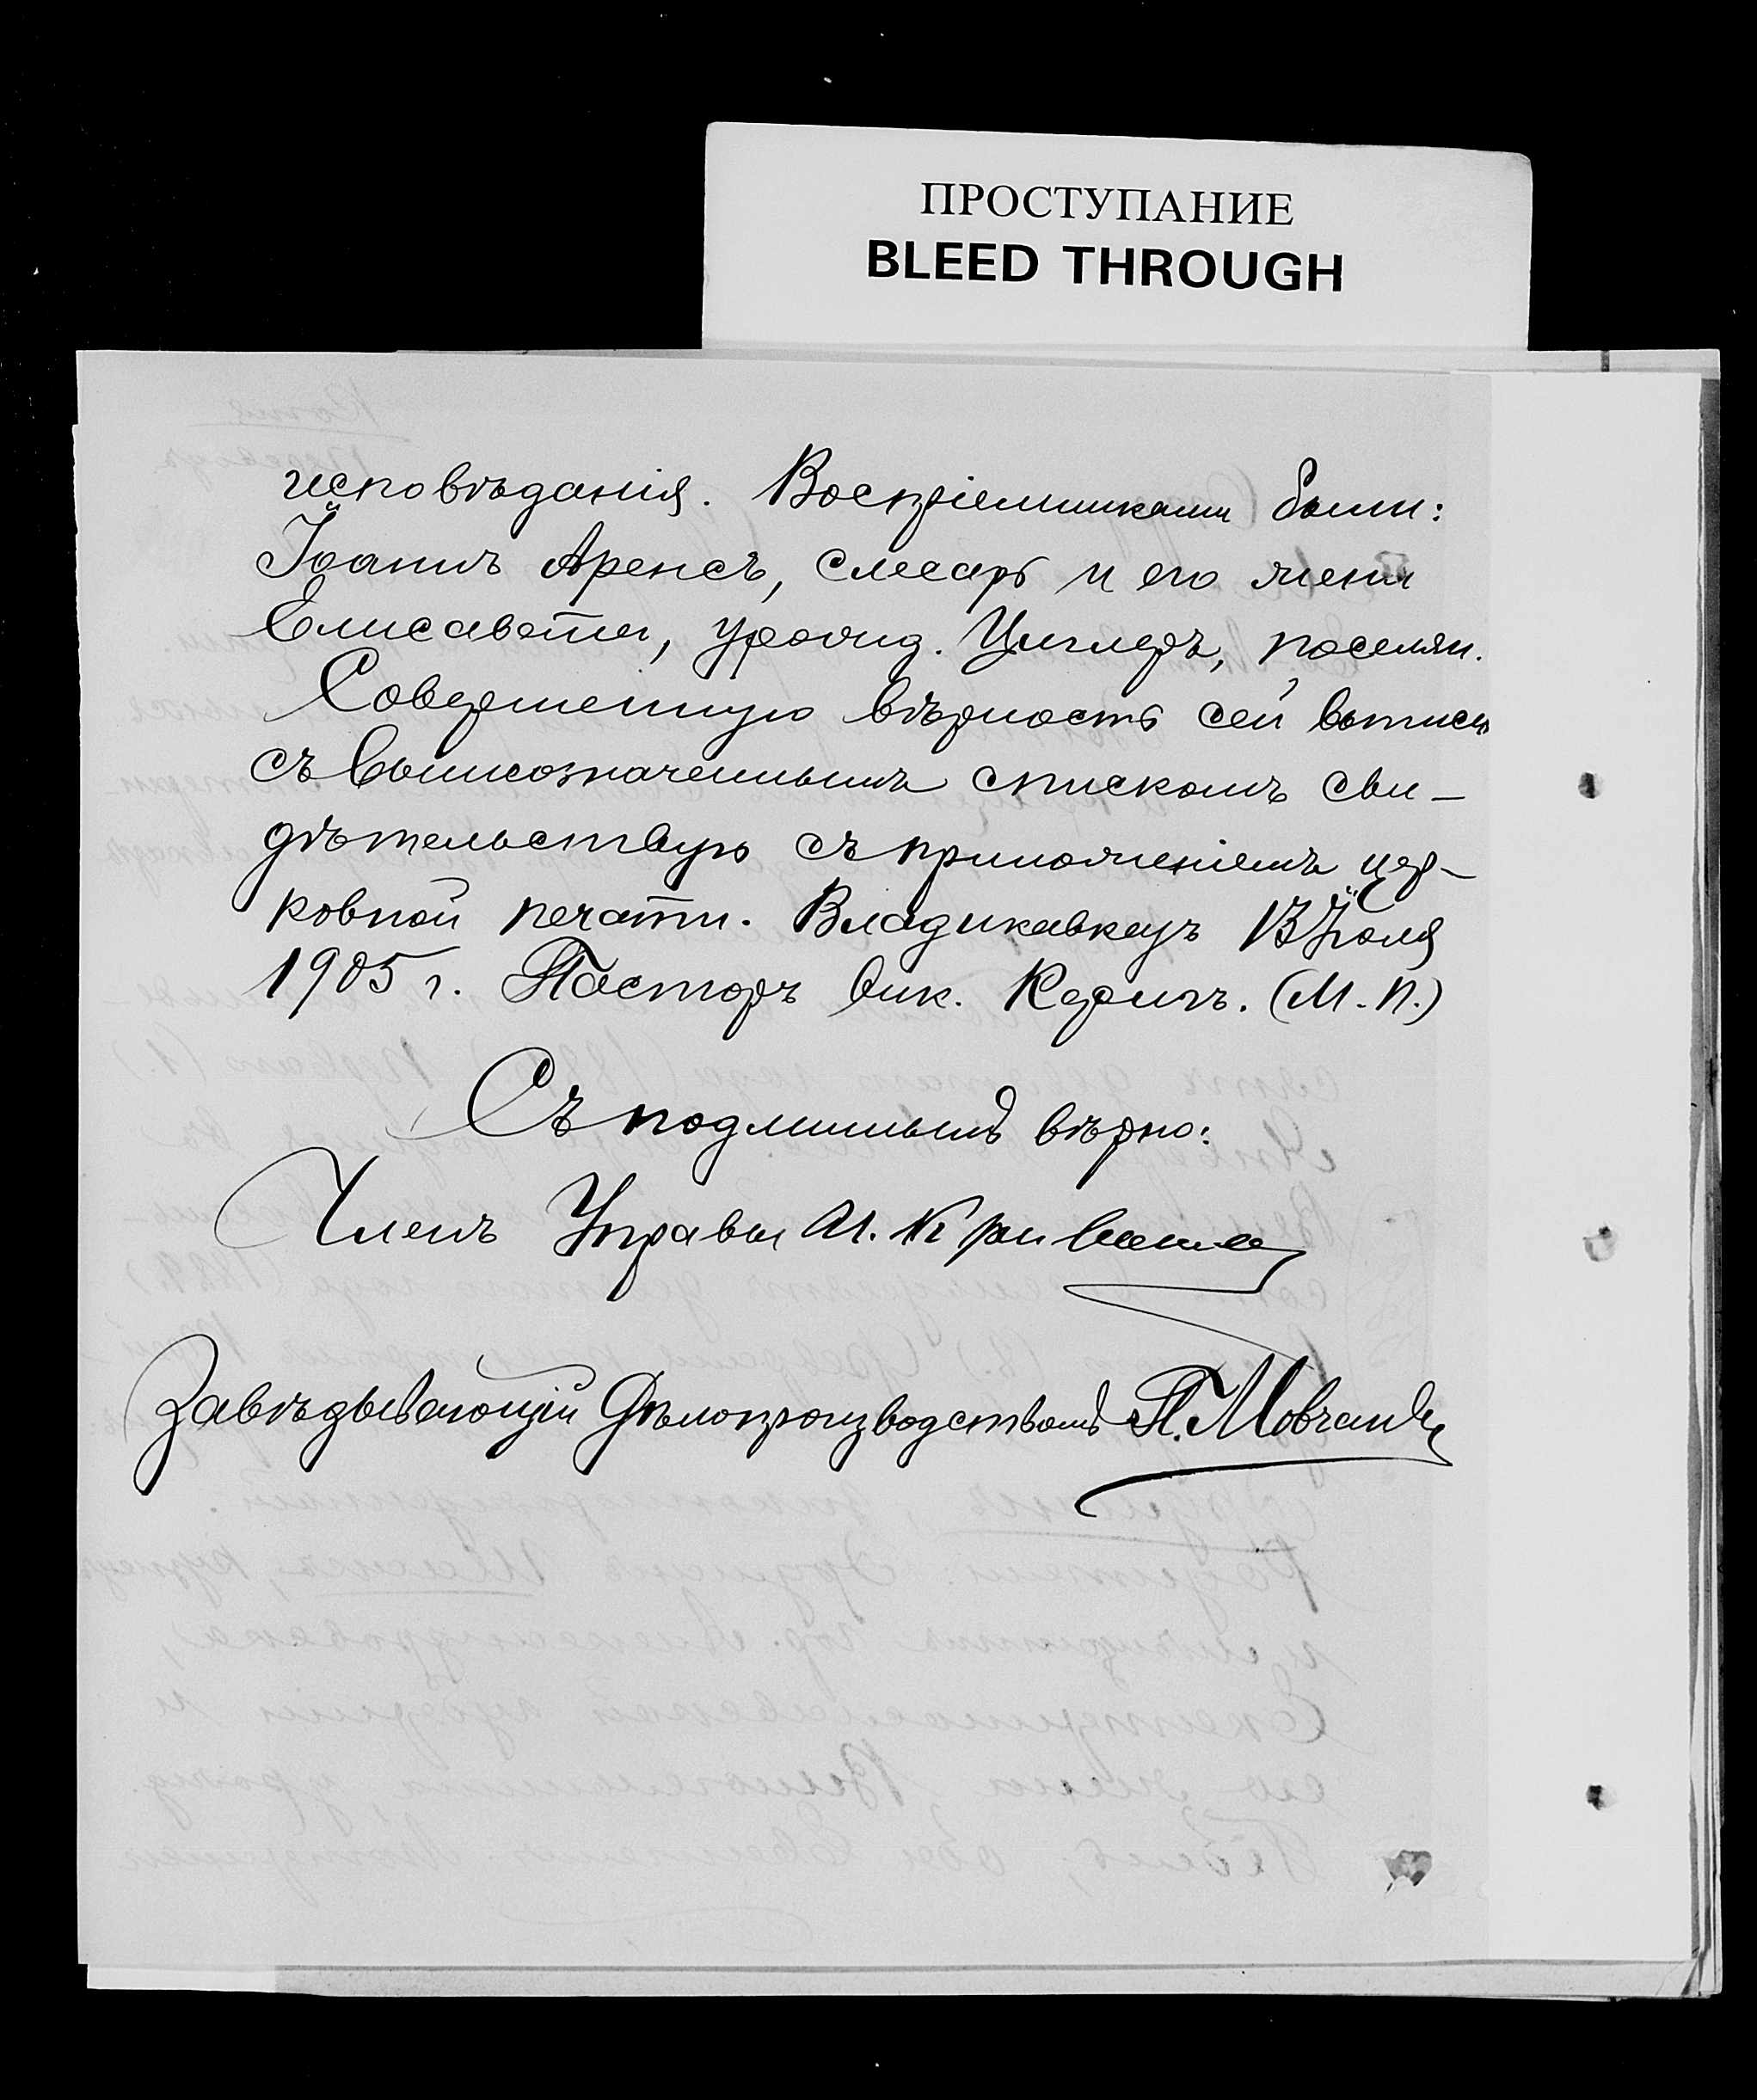 ПРОСТУПАНИЕ
BLEED THROUGH
исповѣданія. Воспріемниками были:
Іоаннъ Аренсъ, слесарь и его жена
Елисавета, урожд. Циглеръ, поселян.
Совершенную вѣрность сей выписи
съ вышеозначеннымъ спискомъ сви-
дѣтельствую съ приложеніемъ цер-
ковной печати. Владикавказъ 13 Іюля
1905 г. Пасторъ вик. (М. П.)
Съ подлиннымъ вѣрно:
Членъ Управы
Завѣдывающій Дѣлопроизводствомъ П. Мовчанъ